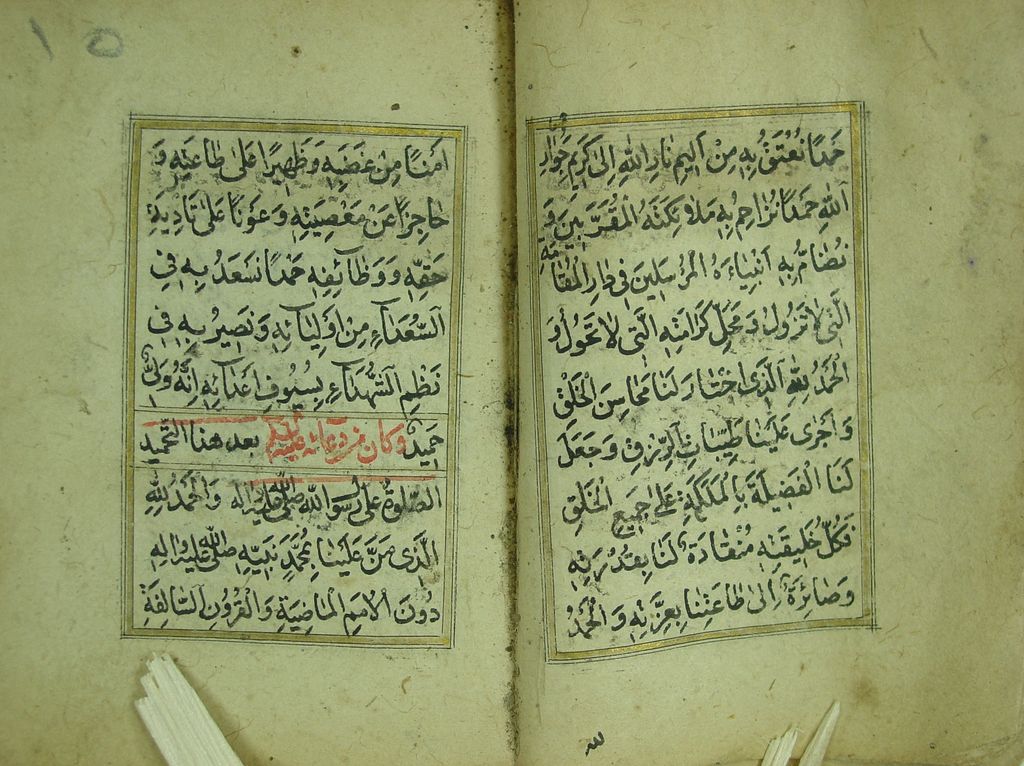 حَمْدًا نُعْتَقُ بِهِ مِنْ اَلِيمِ نَارِ اللهِ اِلىٰ كَرِيمِ جِوَارِ
اللهِ حَمْدًا نُزَاحِمُ بِهِ مَلَائِكَتَهُ الْمُقَرَّبِينَ وَ
نُضَامُّ بِهِ اَنْبِيَاءَهُ الْمُرْسَلِينَ فِى دَارِ الْمُقَامَةِ
الَّتِى لَا تَزُولُ وَ مَحَلِّ كَرَامَتِهِ الَّتِى لَا تَحُولُ وَ
الْحَمْدُ لِلهِ الَّذِى اخْتَارَ لَنَا مَحَاسِنَ الْخَلْقِ
وَ اَجْرىٰ عَلَيْنَا طَيِّبَاتِ الرِّزْقِ وَ جَعَلَ
لَنَا الْفَضِيلَةَ بِالْمَلَكَةِ عَلىٰ جَمِيعِ الْخَلْقِ
فَكُلُّ خَلِيقَتِهِ مُنْقَادَةٌ لَنَا بِقُدْرَتِهِ
وَ صَائِرَةٌ اِلىٰ طَاعَتِنَا بِعِزَّتِهِ وَ الْحَمْدُ
١٥
اَمْنًا مِنْ غَضَبِهِ وَ ظَهِيرًا عَلىٰ طَاعَتِهِ وَ
حَاجِزًا عَنْ مَعْصِيَتِهِ وَ عَوْنًا عَلىٰ تَادِيَةِ
حَقِّهِ وَ وَظَائِفِهِ حَمْدًا نَسْعَدُ بِهِ فِى
السُّعَدَاءِ مِنْ اَوْلِيَائِهِ وَ نَصِيرُ بِهِ فِى
نَظْمِ الشُّهَدَاءِ بِسُيُوفِ اَعْدَائِهِ اِنَّهُ وَلِىٌّ
حَمِيدٌ وكان من دعائه عليه السلام بعد هذا التحميد
الصلوة على رسول الله صلى الله عليه و اله وَ الْحَمْدُ لِلهِ
الَّذِى مَنَّ عَلَيْنَا بِمُحَمَّدٍ نَبِيِّهِ صلى الله عليه و اله
دُونَ الْاُمَمِ الْمَاضِيَةِ وَ الْقُرُونِ السَّالِفَةِ